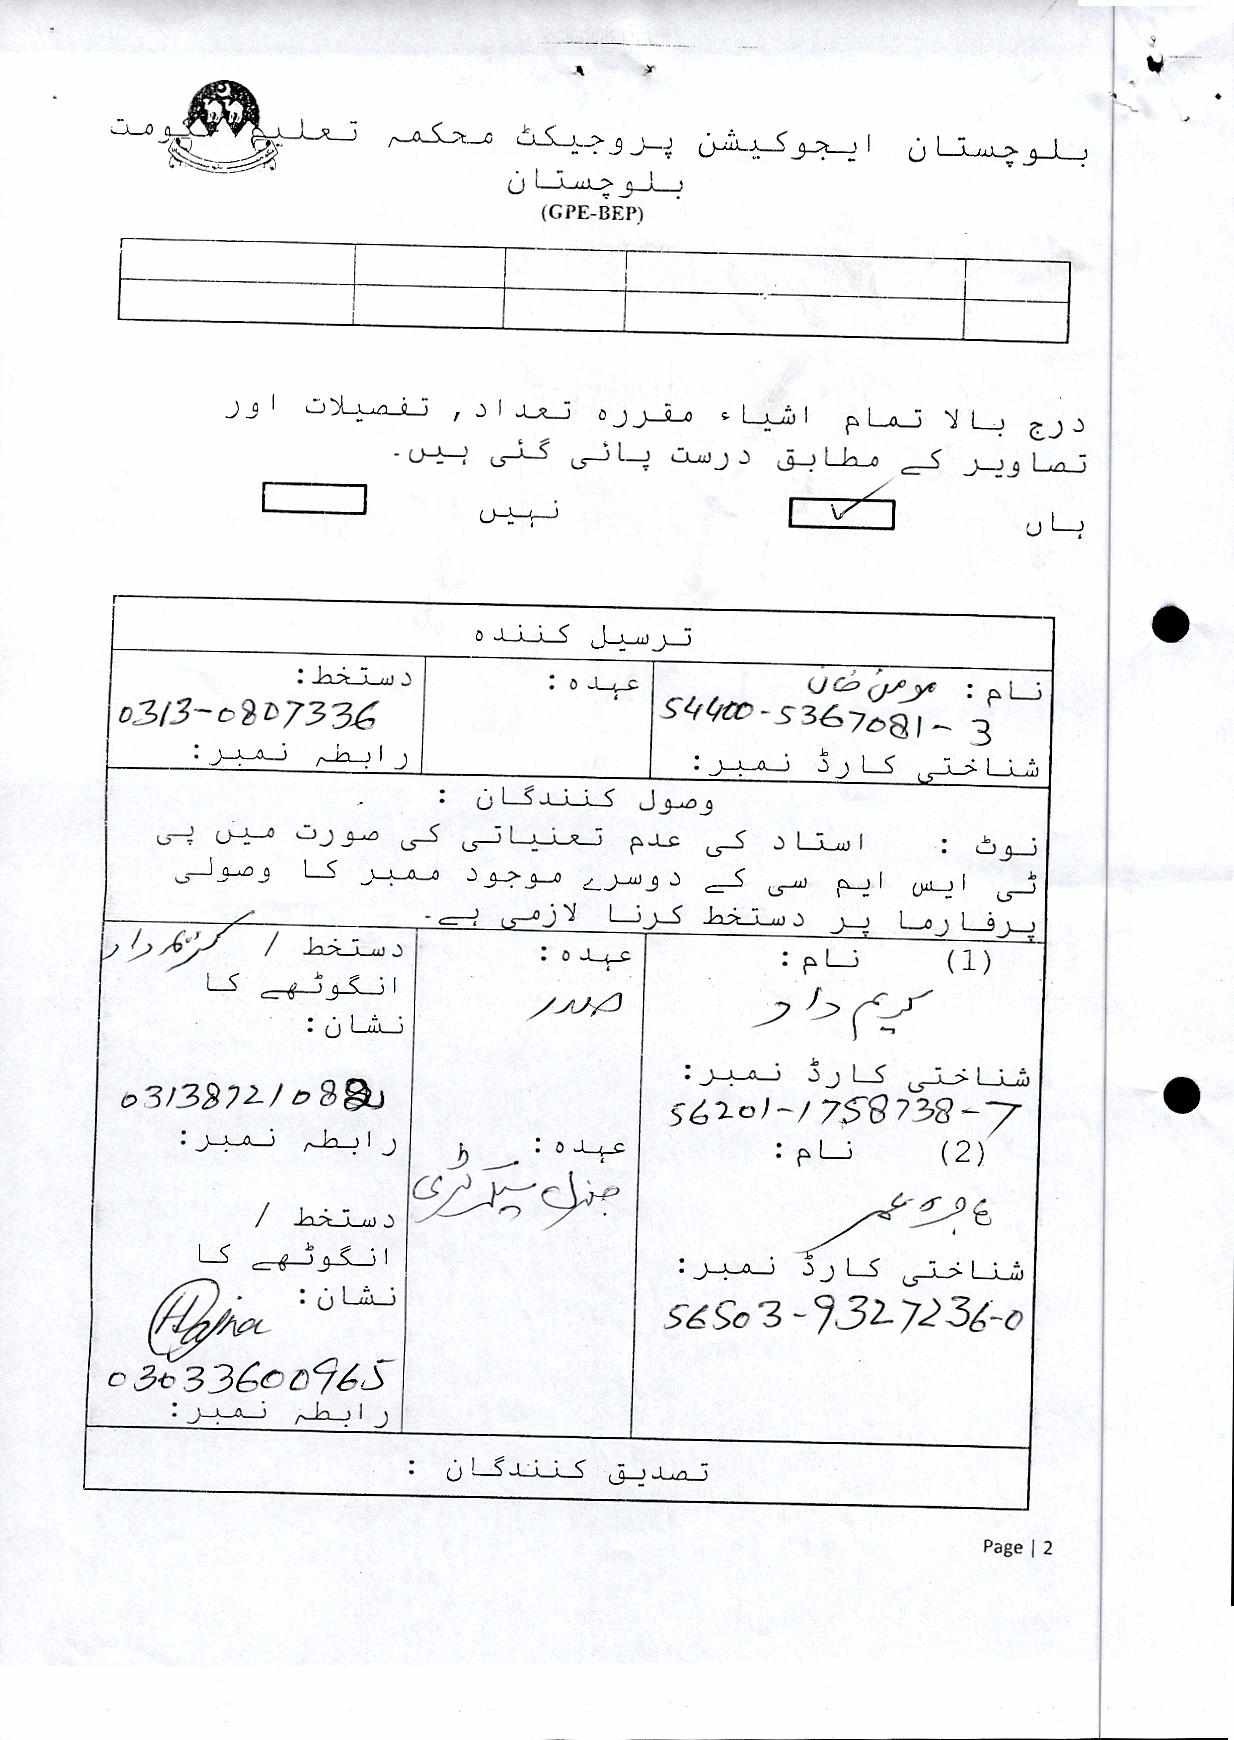 بلوچستان ایجوکیشن پروجیکٹ محکمہ تعلیم حکومت
بلوچستان
(GPE-BEP)
درج بالا تمام اشیاء مقررہ تعداد, تفصیلات اور
تصاویر کے مطابق درست پائی گئی ہیں۔
ہاں ✓ نہیں
ترسیل کنندہ
نام: مومن خان عہدہ: دستخط:
54400-5367081-3 0313-0807336
شناختی کارڈ نمبر: رابطہ نمبر:
وصول کنندگان :
نوٹ : استاد کی عدم تعنیاتی کی صورت میں پی
ٹی ایس ایم سی کے دوسرے موجود ممبر کا وصولی
پرفارما پر دستخط کرنا لازمی ہے۔
(1) نام: عہدہ: دستخط / کریم داد
کریم داد صدر انگوٹھے کا
نشان:
شناختی کارڈ نمبر:
56201-1758738-7 0313872108
(2) نام: عہدہ: رابطہ نمبر:
جنرل سیکرٹری
دستخط /
انگوٹھے کا
شناختی کارڈ نمبر: نشان:
56503-9327236-0 Hajra
03033600965
رابطہ نمبر:
تصدیق کنندگان :
Page | 2